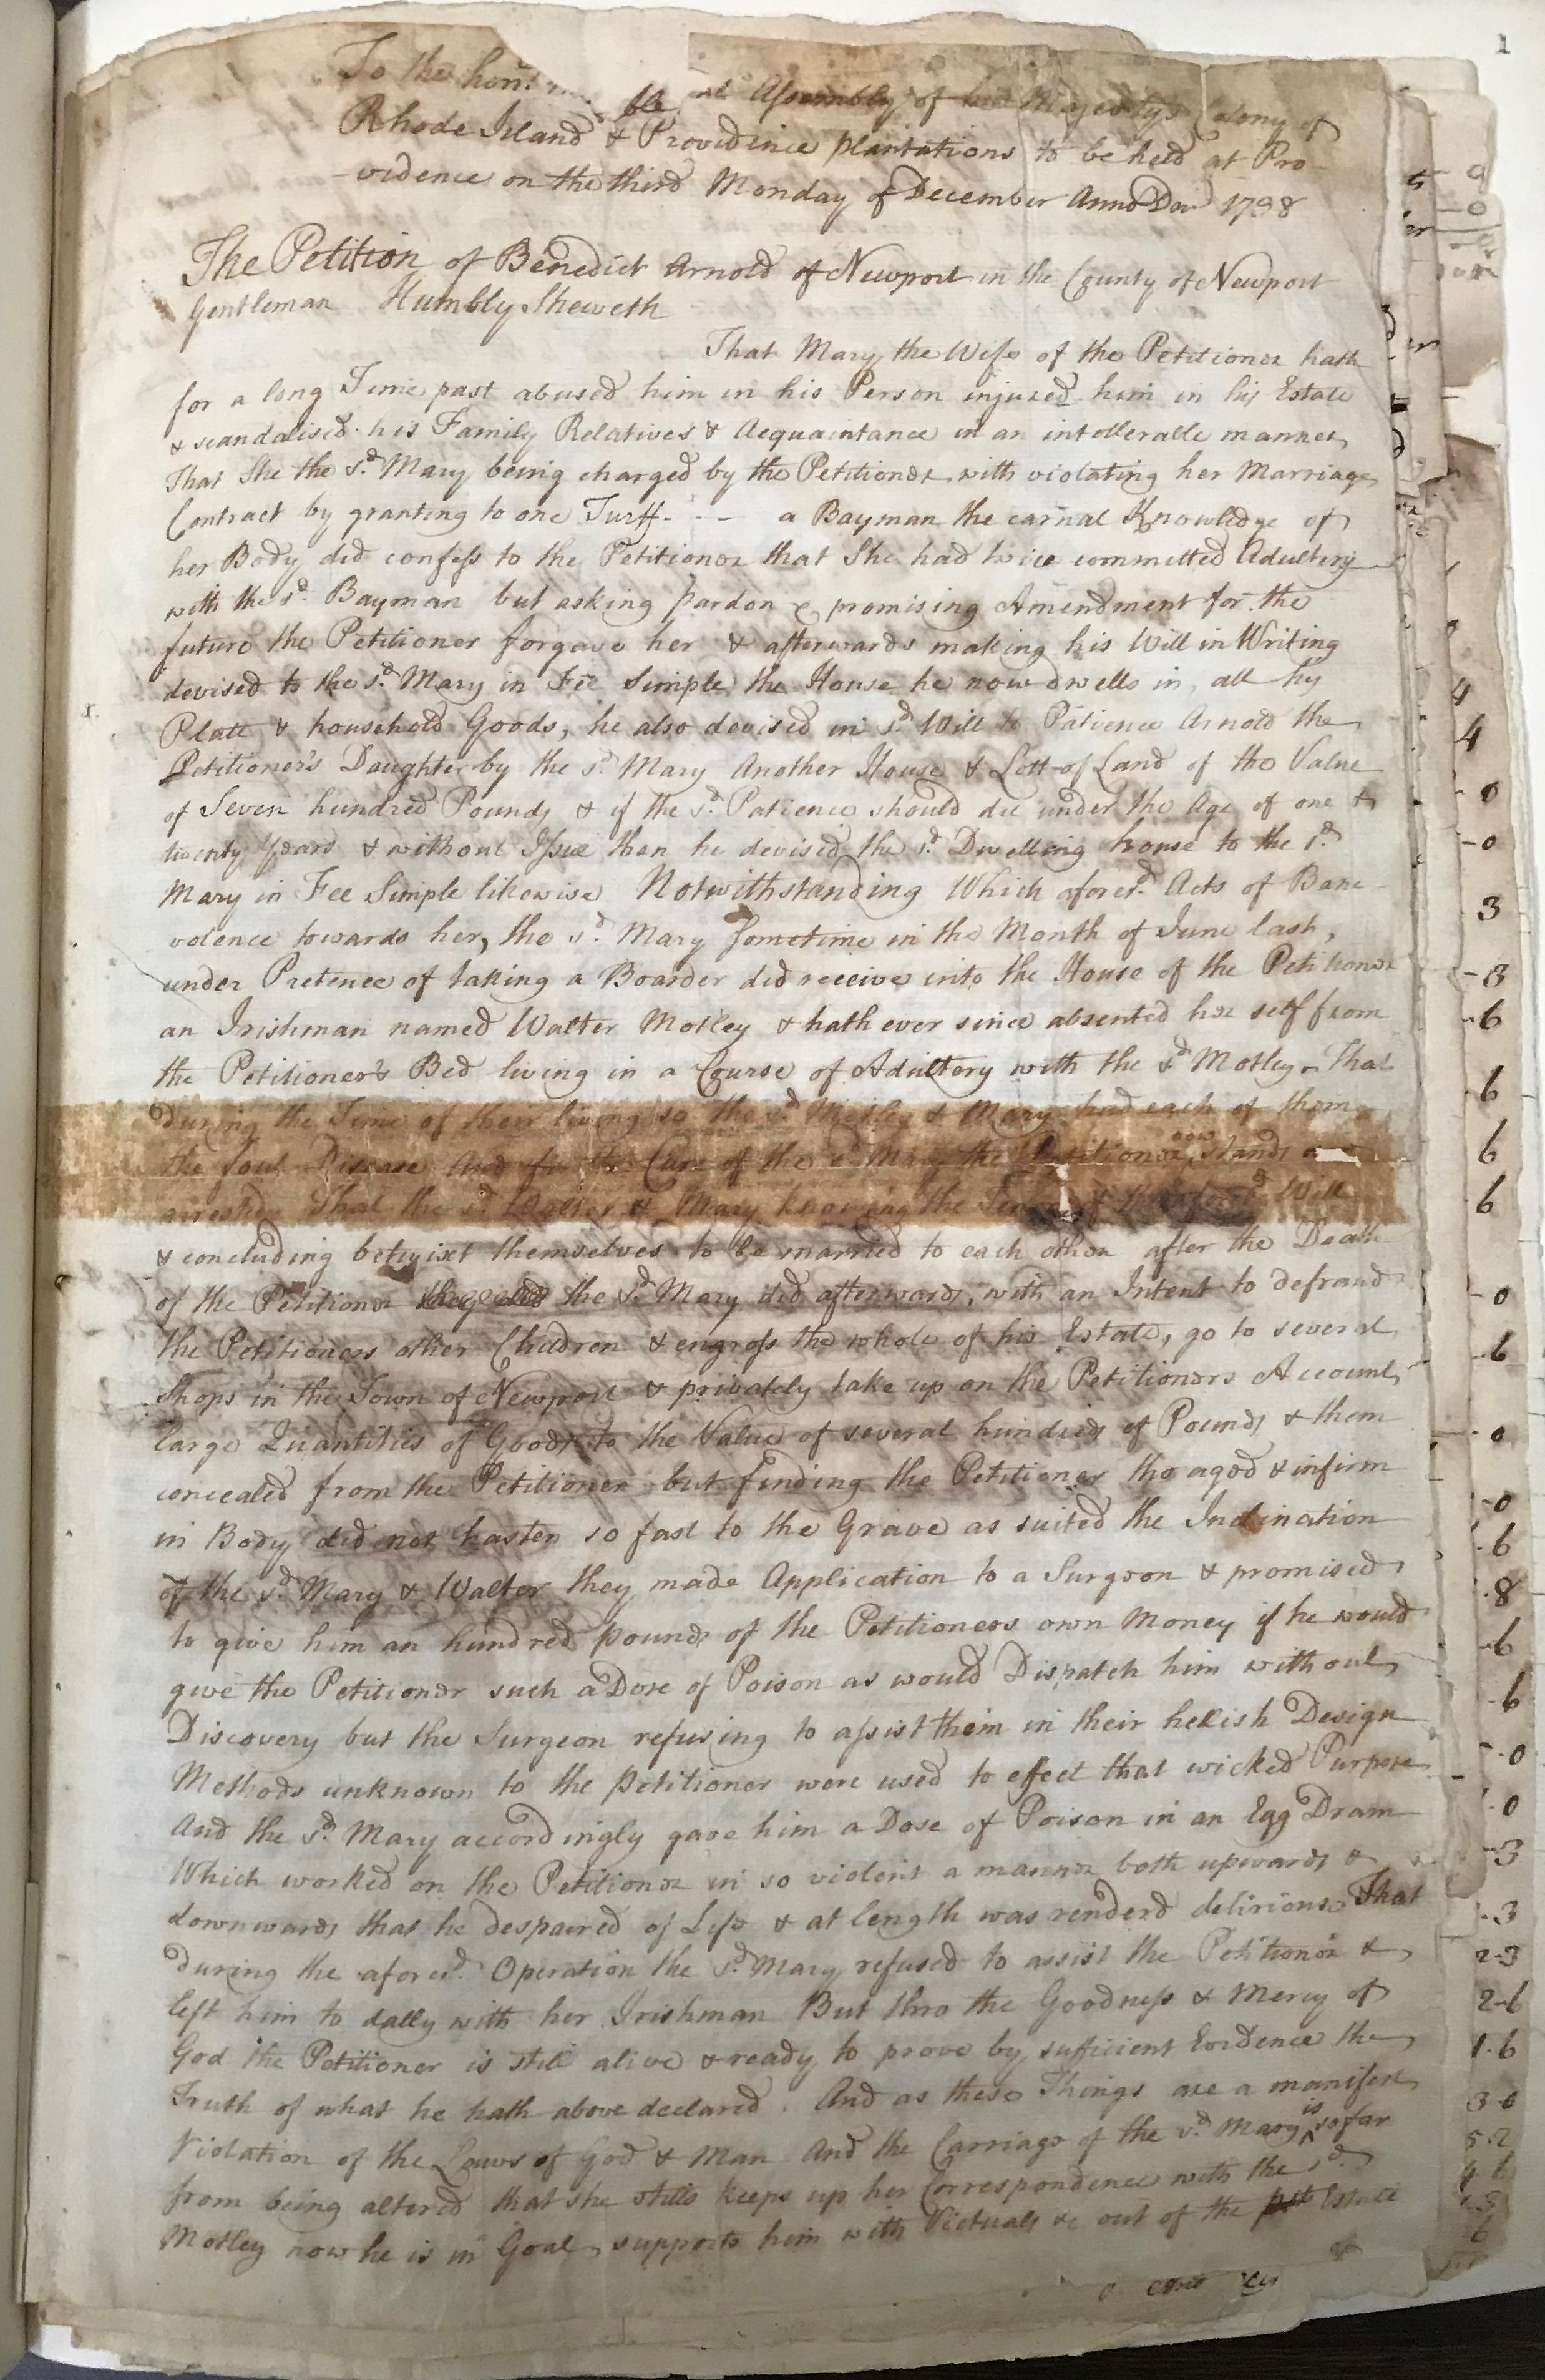 To the hon.ble Assembly of his Majesty's Colony of
Rhode Island & Providence plantations to be held at Pro-
-vidence on the third Monday of December Anno Dom 1738
The Petition of Benedict Arnold of Newport in the County of Newport
Gentleman Humbly Sheweth
That Mary the Wife of the Petitioner hath
for a long Time past abused him in his Person injured him in his Estate
& scandalised his Family Relatives & Acquaintance in an intollerable manner,
That She the sd. Mary being charged by the Petitioner with violating her Marriage
Contract by granting to one Turff - - - a Bayman the carnal Knowledge of
her Body did confess to the Petitioner that She had twice committed Adultery
with the sd. Bayman but asking pardon & promising Amendment for the
future the Petitioner forgave her & afterwards making his Will in Writing
devised to the sd. Mary in Fee Simple the House he now dwells in, all his
Plate & household Goods, he also devised in sd. Will to Patience Arnold the
Petitioner's Daughter by the sd. Mary Another House & Lott of Land of the Value
of Seven hundred Pounds & if the sd. Patience should die under the Age of one &
twenty Years & without Issue then he devised the sd. Dwelling house to the sd.
Mary in Fee Simple likewise Notwithstanding Which aforesd. Acts of Bene-
volence towards her, the sd. Mary sometime in the Month of June last,
under Pretence of taking a Boarder did receive into the House of the Petitioner
an Irishman named Walter Motley & hath ever since absented her self from
the Petitioner's Bed living in a Course of Adultery with the sd Motley. That
During the Time of their living so the sd Motley & Mary had each of them
the foul Disease And for the Cure of the sd. Mary the Petitioner now stands
arrested That the sd. Walter & Mary knowing the of the aforesd Will
& concluding betwixt themselves to be married to each other after the Death
of the Petitioner the sd. Mary did afterwards, with an Intent to defraud
the Petitioners other Children & engross the whole of his Estate, go to several
Shops in the Town of Newport & privately take up on the Petitioners Account
large Quantities of Goods to the Value of several hundreds of Pounds & them
concealed from the Petitioner but finding the Petitioner tho aged & infirm
in Body did not hasten so fast to the Grave as suited the Inclination
of the sd. Mary & Walter they made Application to a Surgeon & promised
to give him an hundred pounds of the Petitioners own Money if he would
give the Petitioner such a Dose of Poison as would Dispatch him without
Discovery but the Surgeon refusing to assist them in their hellish Design
Methods unknown to the petitioner were used to effect that wicked Purpose
And the sd. Mary accordingly gave him a Dose of Poison in an Egg Dram
Which worked on the Petitioner in so violent a manner both upwards &
downwards that he despaired of Life & at length was renderd delirious. That
During the aforesd. Operation the sd. Mary refused to assist the Petitioner &
left him to dally with her Irishman But thro the Goodness & Mercy of
God the Petitioner is still alive & ready to prove by sufficient Evidence the
Truth of what he hath above declared. And as these Things are a manifest
Violation of the Laws of God & Man And the Carriage of the sd. Mary is so far
from being altered that she stills keeps up her Correspondence with the sd.
Motley now he is in Goal, supports him with Victuals &c out of the Estate
of